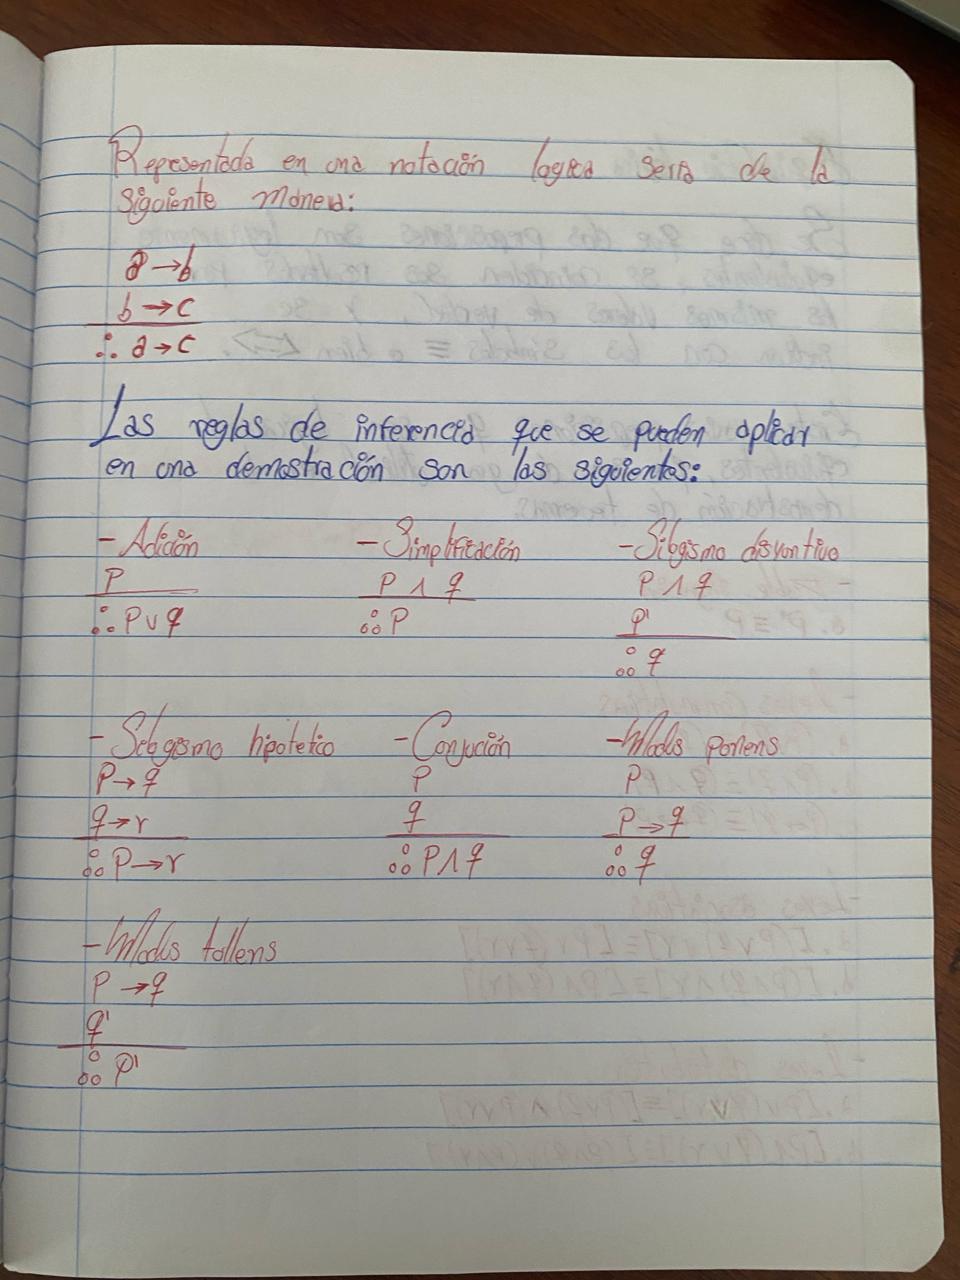 Representada en una notación logica seria de la
siguiente manera:
a → b
b → c
∴ a → c
Las reglas de inferencia que se pueden aplicar
en una demostración son las siguientes:
- Adición - Simplificación - Silogismo disyuntivo
P P ∧ q P ∧ q
∴ P ∨ q ∴ P P'
∴ q
- Silogismo hipotetico - Conjución - Modus ponens
P → q P P
q → r q P → q
∴ P → r ∴ P ∧ q ∴ q
- Modus tollens
P → q
q'
∴ P'